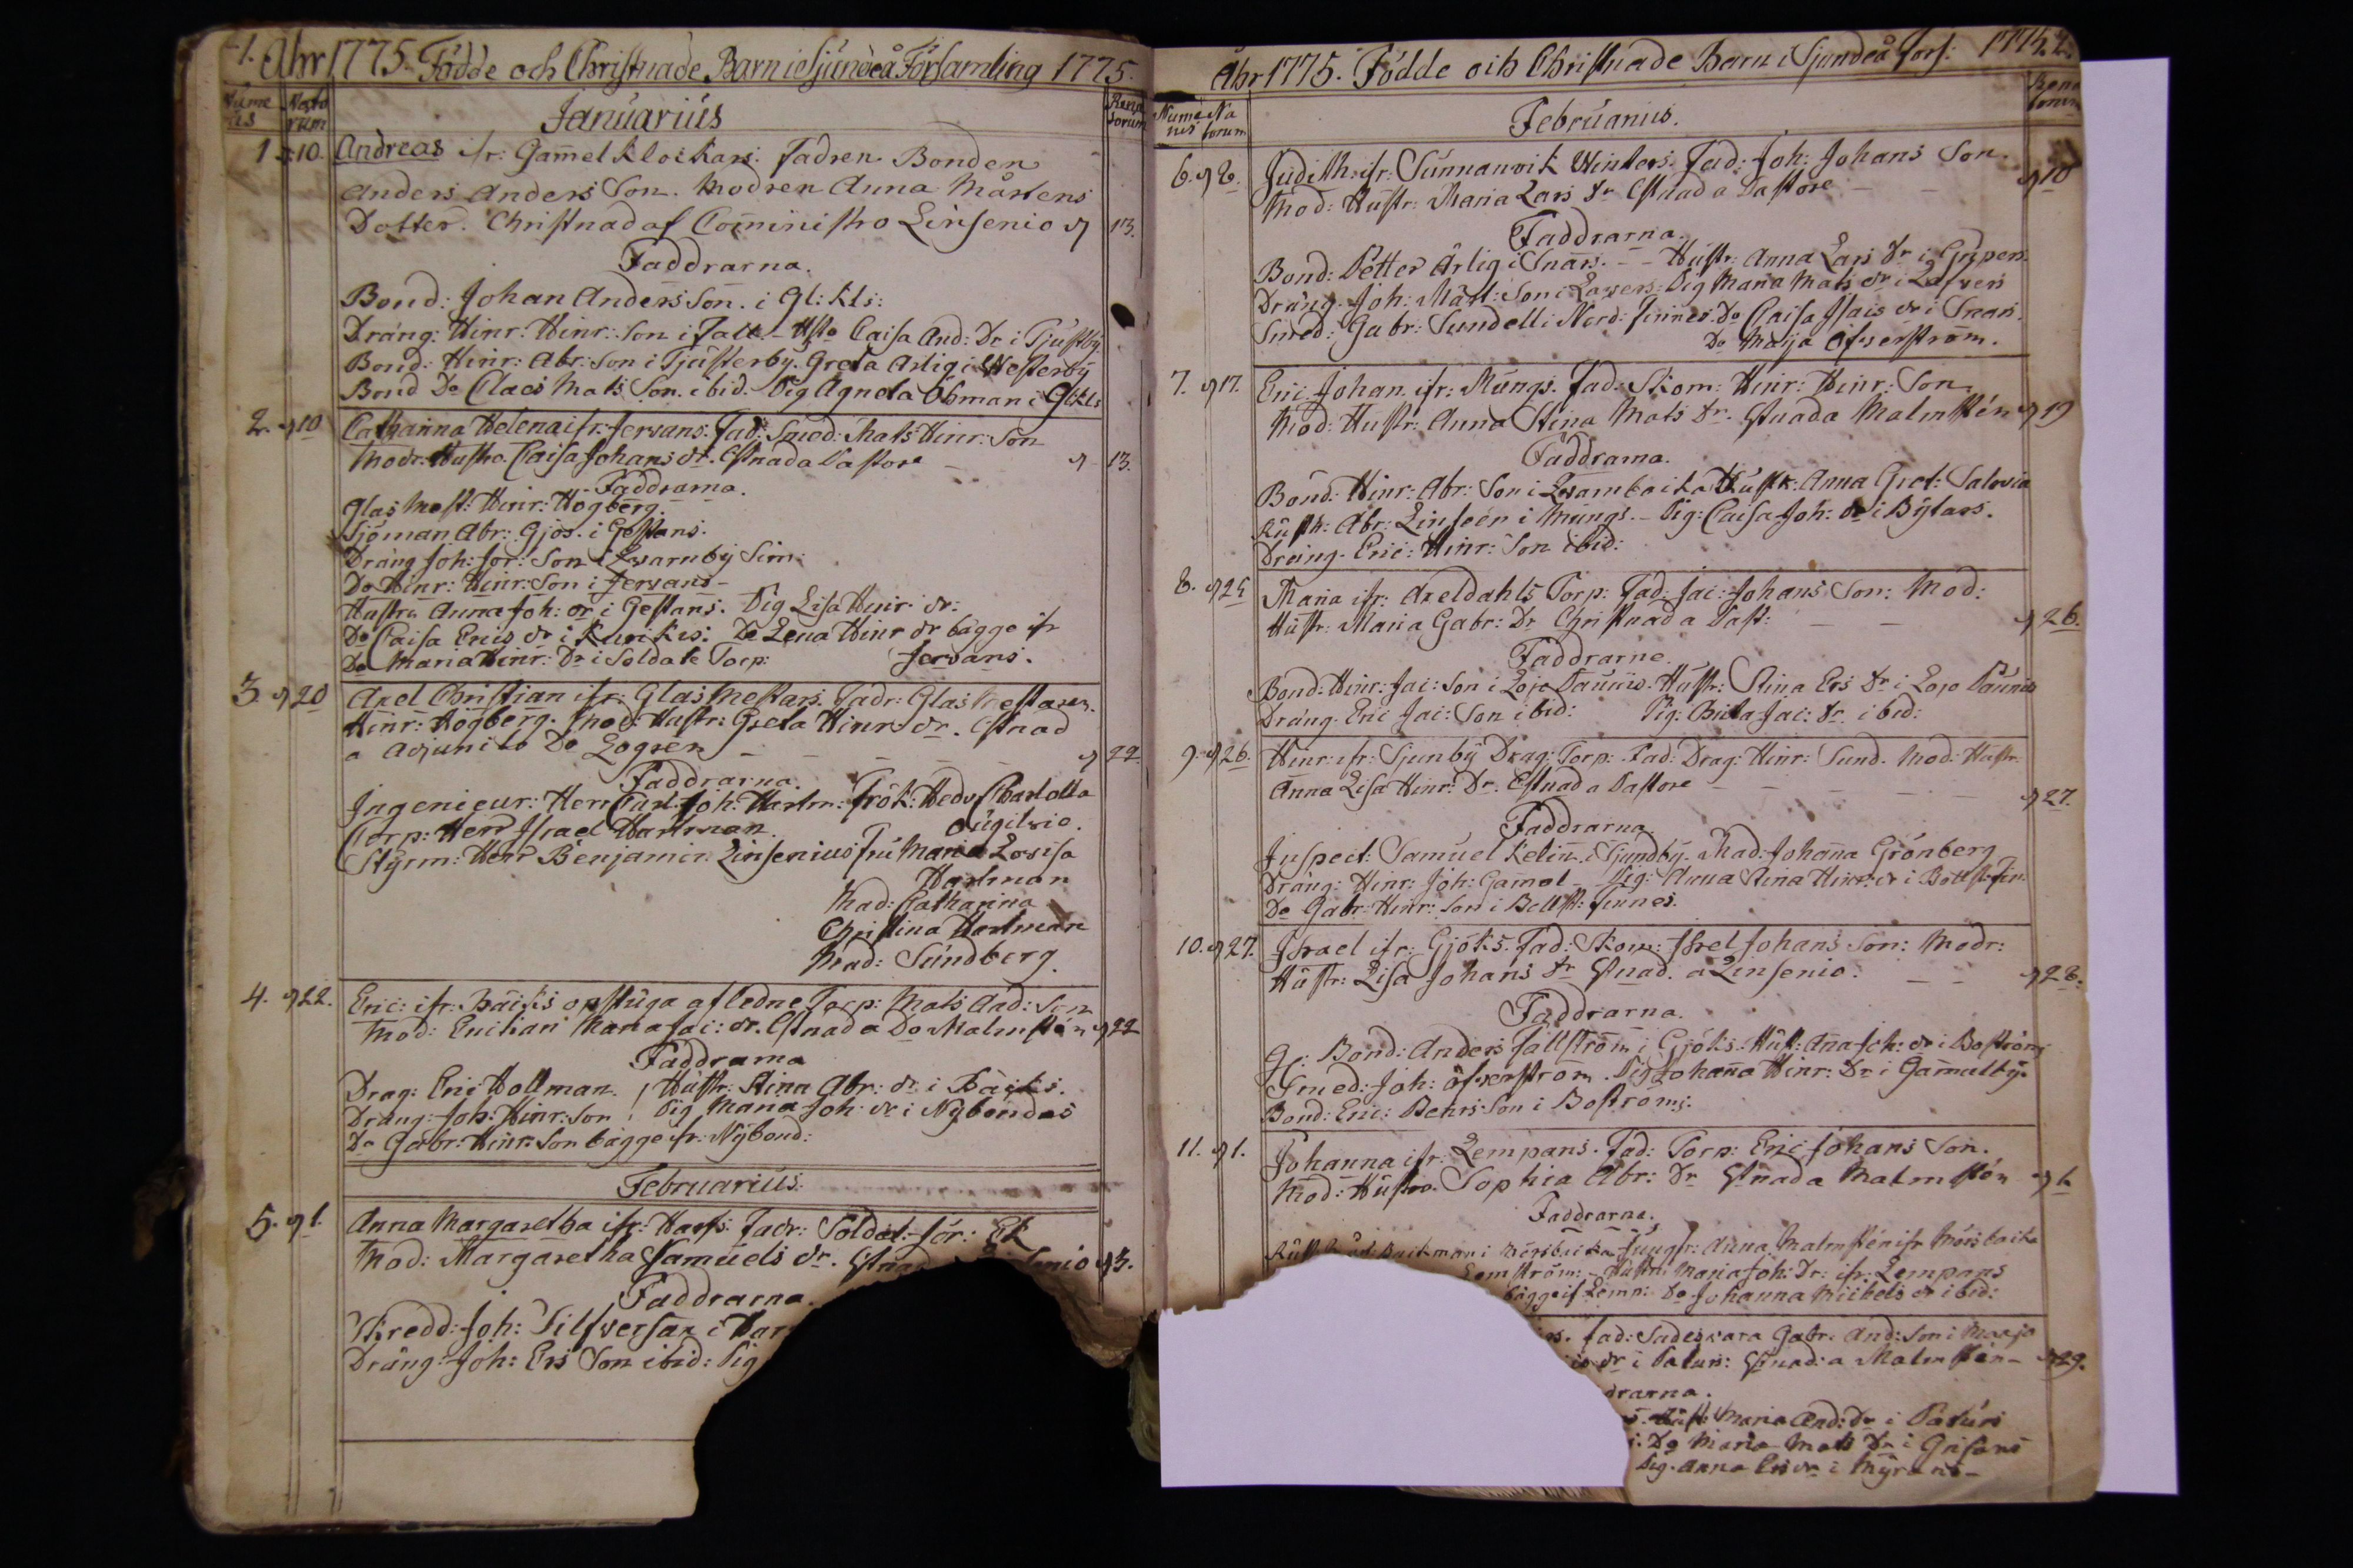 1. Åhr 1775. Födde och Christnade Barn i Sjundeå Församling 1775.
Nume rus Nato rum Januarius Rena torum
1 10. Andreas ifr: Gam̄elklockars. Fadren Bonden
Anders Anders Son. Modren Anna Mårtens
Dotter. Christnad af Com̄inistro Linsenio d 13.
Faddrarna.
Bond: Johan Anders Son. i Gl: Kls:
Dräng: Hinr: Hinr: Son i Fall - Hst Caisa And: Dr i Tjustby
Bond: Hinr: Abr: Son i Tjusterby. Greta Arlig i Westerby
Bond Do Claes Mats Son. ibid. Pig Agneta Öbman i Gl Kls
2. d 10 Catharina Helena ifr: Jersans. Fad: Smed: Mats Hinr: Son
Modr: Hustro. Caisa Johans dr. Cstnad a Pastore d 13.
Faddrarna.
Glas Mest: Hinr: Högberg.
Sjöman Abr: Gjös. i Gestans.
Dräng Joh: Jör: Son i Qwarnby Sim:
Do Hinr: Hinr: Son i Jersans -
Hustru Anna Joh: dr i Gestans. Pig Lisa Hinr: dr:
Do Caisa Erics dr i Kurikis: Do Lena Hinr dr bägge ifr
Do Maria Hinr: Dr i Soldate Torp: Jersans.
3. d 20 Axel Christian ifr: Glas Mestars. Fadr: Glas Mestaren
Hinr: Högberg. Mod: Hustr: Greta Hinrs dr. Cstnad
a Adjuncto Do Logren d 22
Faddrarna.
Ingenieur: Herr Carl Joh: Hartm: Frök: Hedv Charlotta
Corp: Herr Israel Hartman. Ougilwie.
Styrm: Herr Benjamin Linsenius Fru Maria Lovisa
Hartman
Mad: Catharina
Christina Hartman
Mad: Sundberg
4. d 22. Eric: ifr: Bäcks opstuga afledne Torp: Mats And: Son
Mod: Enckan Maria Jac: dr. Cstnad a Do Malmstén d 22
Faddrarna
Drag: Eric Hollman. Hustr: Stina Abr: dr i Bäcks.
Dräng: Joh: Hinr: Son Pig Maria Joh: dr i Nybondas
Do Gabr: Hinr: Son bägge ifr: Nybond:
Februarius:
5. d 1. Anna Margaretha ifr: Harfs. Fadr: Soldat: Jör: Ek
Mod: Margaretha Samuels dr. Cstnad senio d 3.
Faddrarna.
Skredd: Joh: Silfversan i Har
Dräng: Joh: Ers Son ibid: Pig
Åhr 1775. Födde och Christnade Barn i Sjundeå Förs: 1775. 2.
Nume rus Na torum Februarius. Rena torum
6. d 8. Judith. ifr: Sunnanwik Winters. Fad: Joh: Johans Son.
Mod: Hustr: Maria Lars dr Cstnad a Pastore d 10
Faddrarna.
Bond: Petter Ärlig i Snars. - Hustr: Anna Lars dr i Gripens.
Dräng. Joh: Mårt: Son i Lavers. Pig Maria Mats dr i Lafvers
Smed: Gabr: Sundell i Nord: Finnes. Do Caisa Isacs dr i Snars.
Do Maja Öfverström.
7. d 17. Eric Johan. ifr: Mungs. Fad: Skom: Hinr: Hinr: Son.
Mod: Hustr: Anna Stina Mats Dr. Cstnad a Malmstén d 19
Faddrarna.
Bond: Hinr: Abr: Son i Qwarnbacka Hustr: Anna Gret: Salovia
Rustm: Abr: Linseén i Mungs. - Pig: Caisa Joh: dr i Bytars.
Dräng. Eric: Hinr: Son ibid:
8. d 25 Maria ifr: Axeldahls Torp: Fad: Jac: Johans Son: Mod:
Hustr: Maria Gabr: Dr Christnad a Past: d 26.
Faddrarne.
Bond: Hinr: Jac: Son i Lojo Paunis. Hustr: Stina Ers Dr i Lojo Paunis
Dräng. Eric Jac: Son ibid: Pig: Brita Jac: dr ibid:
9. d 26. Hinr: ifr: Sjunby Drag: Torp: Fad: Drag: Hinr: Sund. Mod: Hustr.
Anna Lisa Hinr: Dr. Cstnad a Pastore d 27.
Faddrarna.
Inspect: Samuel Kelin i Sjundby. Mad: Johan̄a Grönberg
Dräng: Hinr: Joh: Gam̄al - Pig: Anna Stina Hinr: dr i Böllst Fin:
Do Gabr: Hinr: Son i Bollst: Finnes.
10. d 27. Israel ifr: Gjöks. Fad: Skom: Isrel Johans Son: Modr:
Hustr: Lisa Johans dr Cstnad. a Linsenio. d 28.
Faddrarna.
Bond: Anders Fallström i Gjöks. Hust: Anna Joh: dr i Boströms
Smed: Joh: Öfverström. Pig Johan̄a Hinr: Dr i Gam̄elby.
Bond: Eric: Benrs: Son i Boströms.
11. d 1. Johanna ifr: Lempans. Fad: Torp: Eric Johans Son.
Mod: Hustro. Sophia Abr: Dr Cstnad a Malmstén d 6
Faddrarne.
Jungfr: Anna Malmstén ifr Mörsbacka
Lemström: - Hustr: Maria Joh: Dr: ifr: Lempans
bägge if Lemp: Do Johanna Michels dr ibid:
Fad: Sadeswara Gabr: And: Son i Marjo
dr i Paturs: Cstnad: a Malmstén - d 29.
drarna.
Hust: Maria And: Dr i Paturs
Do Maria Mats Dr i Grisans
Pig. Anna Ers dr i Myrans -